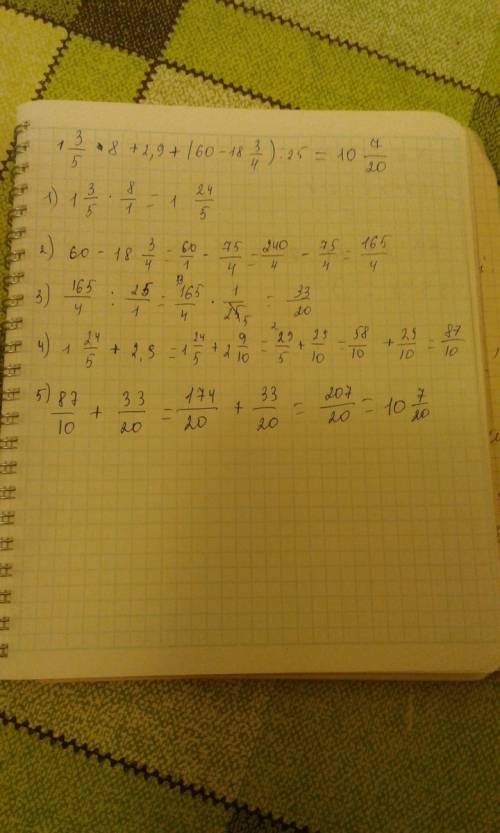 1 3/5 · 8 + 2,9 + (60 - 18 3/4) : 25 = 10 7/20
1) 1 3/5 · 8/1 = 1 24/5
2) 60 - 18 3/4 = 60/1 - 75/4 = 240/4 - 75/4 = 165/4
3) 165/4 : 25/1 = 165/4 · 1/25 = 33/20
4) 1 24/5 + 2,9 = 1 24/5 + 2 9/10 = 29/5 + 29/10 = 58/10 + 29/10 = 87/10
5) 87/10 + 33/20 = 174/20 + 33/20 = 207/20 = 10 7/20